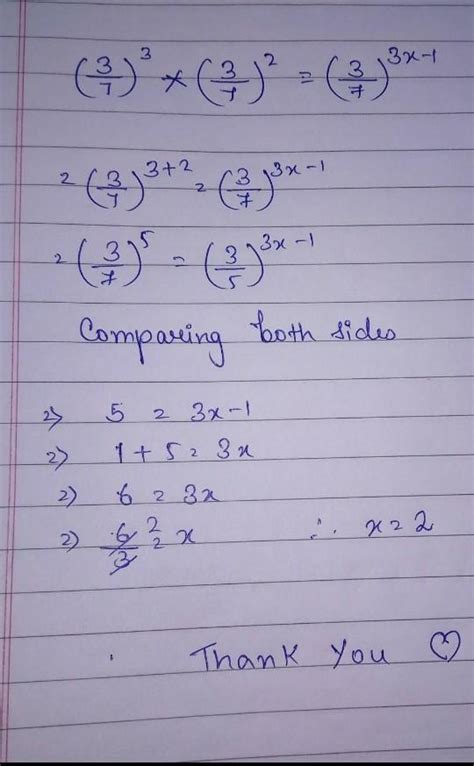 (3/7)^3 × (3/7)^2 = (3/7)^{3x-1}
= (3/7)^{3+2} = (3/7)^{3x-1}
= (3/7)^5 = (3/5)^{3x-1}
Comparing both sides
=> 5 = 3x-1
=> 1+5 = 3x
=> 6 = 3x
=> 6/3 2 = x ∴ x = 2
Thank You ♡